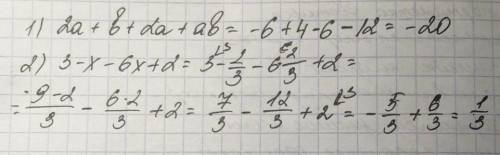 1) 2a + b + 2a + ab = -6 + 4 - 6 - 12 = -20
2) 3 - x - 6x + 2 = 3^{\3} - 2/3 - 6·2/3 + 2 =
= (9 - 2)/3 - (6·2)/3 + 2 = 7/3 - 12/3 + 2^{\3} = -5/3 + 6/3 = 1/3